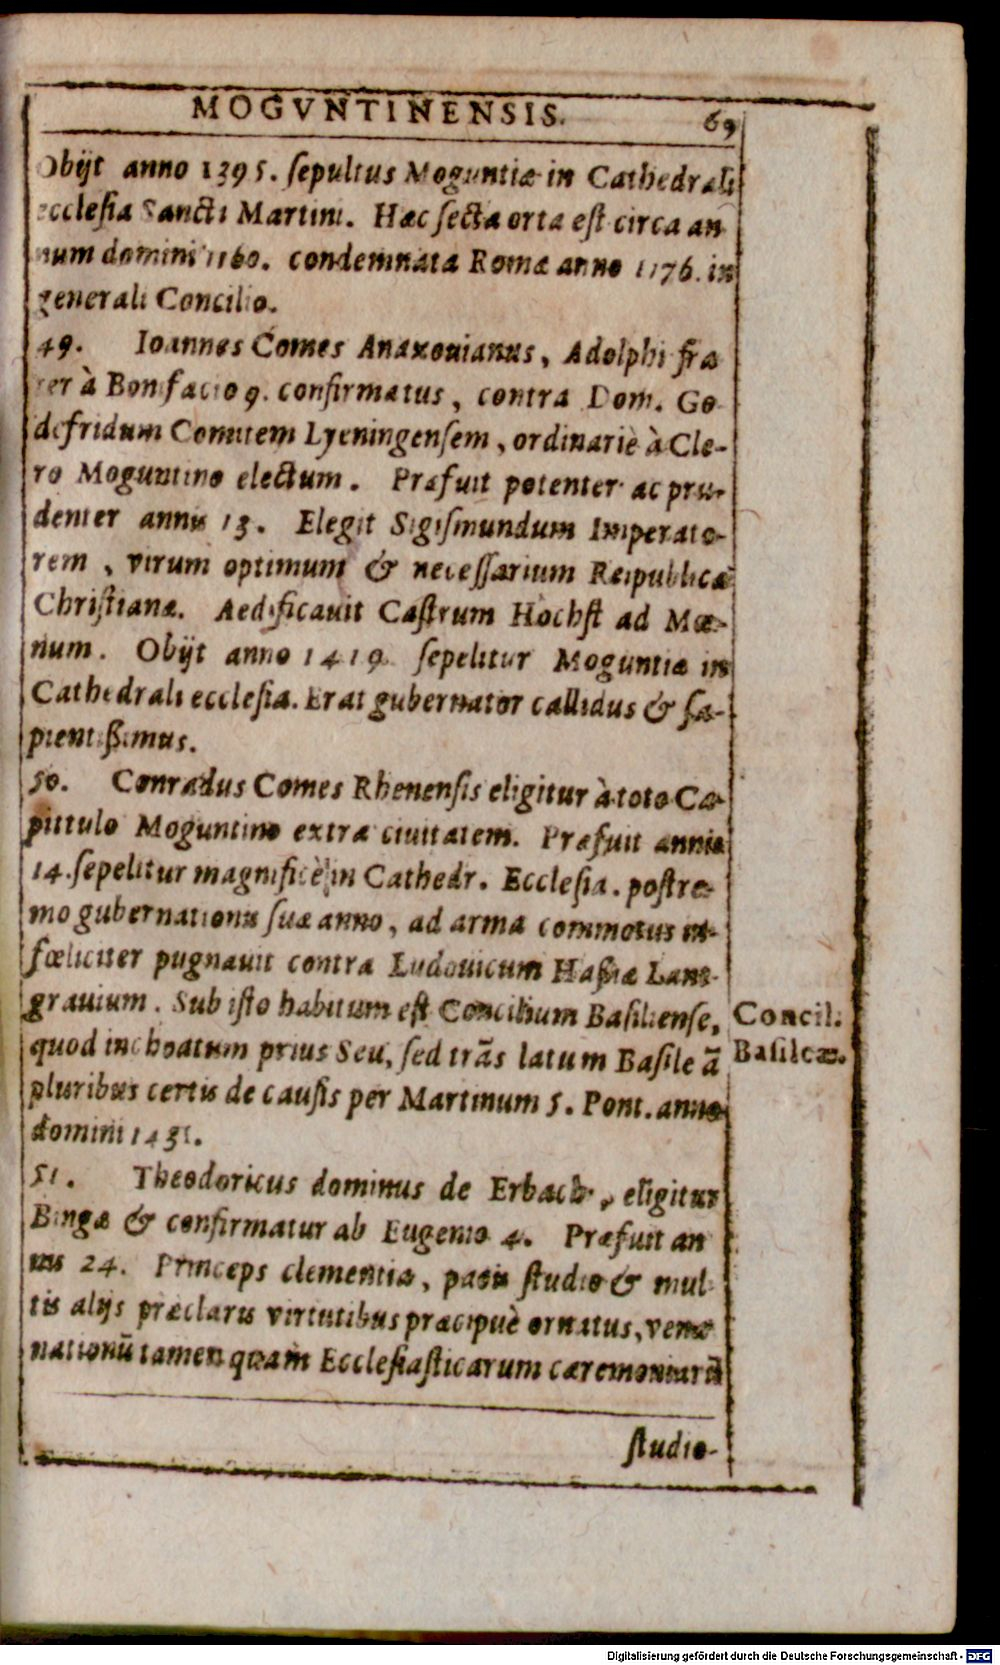 MOGVNTINENSIS. 69
Obijt anno 1395. sepultus Moguntiæ in Cathedrali
ecclesia Sancti Martini. Hæc secta orta est circa an
num domini 1160. condemnata Romæ anno 1176. in
generali Concilio.
49. Ioannes Comes Anaxouianus, Adolphi fra
ter à Bonifacio 9. confirmatus, contra Dom. Go
defridum Comitem Lyeningensem, ordinariè à Cle-
ro Moguntino electum. Præfuit potenter ac pru-
denter annis 13. Elegit Sigismundum Imperato-
rem, virum optimum & necessarium Reipublicæ
Christianæ. Aedificauit Castrum Hochst ad Mœ-
num. Obijt anno 1419. sepelitur Moguntiæ in
Cathedrali ecclesia. Erat gubernator callidus & sa-
pientißimus.
50. Conradus Comes Rhenensis eligitur à toto Ca-
pittulo Moguntino extra ciuitatem. Præfuit annis
14. sepelitur magnificè in Cathedr. Ecclesia. postre-
mo gubernationis suæ anno, ad arma commotus in-
fœliciter pugnauit contra Ludouicum Hassiæ Lant-
grauium. Sub isto habitum est Concilium Basiliense,
quod inchoatum prius Seu, sed trãs latum Basile ã
pluribus certis de causis per Martinum 5. Pont. anno
domini 1431.
Concil.
Basileæ.
51. Theodoricus dominus de Erbach, eligitur
Bingæ & confirmatur ab Eugenio 4. Præfuit an
nis 24. Princeps clementia, pacis studio & mul
tis alijs præclaris virtutibus præcipuè ornatus, vena
nationũ tamen quam Ecclesiasticarum cæremoniarũ
studio-
Digitalisierung gefördert durch die Deutsche Forschungsgemeinschaft - DFG